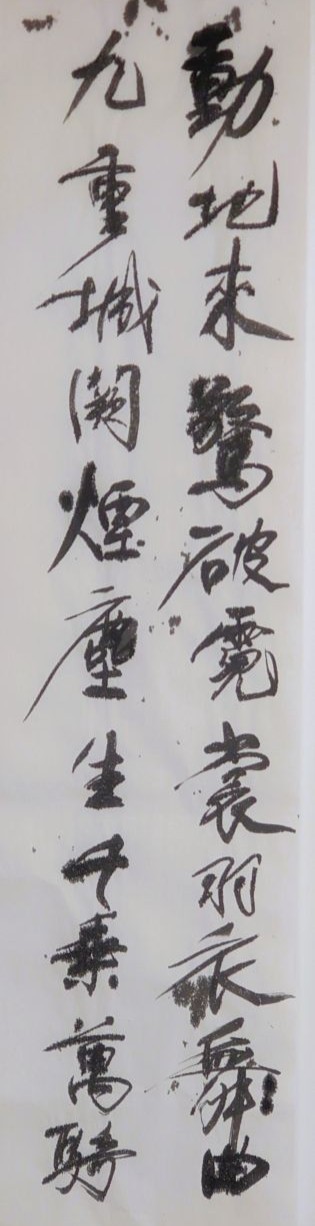 動地來驚破霓裳羽衣舞曲
九重城闕煙塵生千乘萬騎